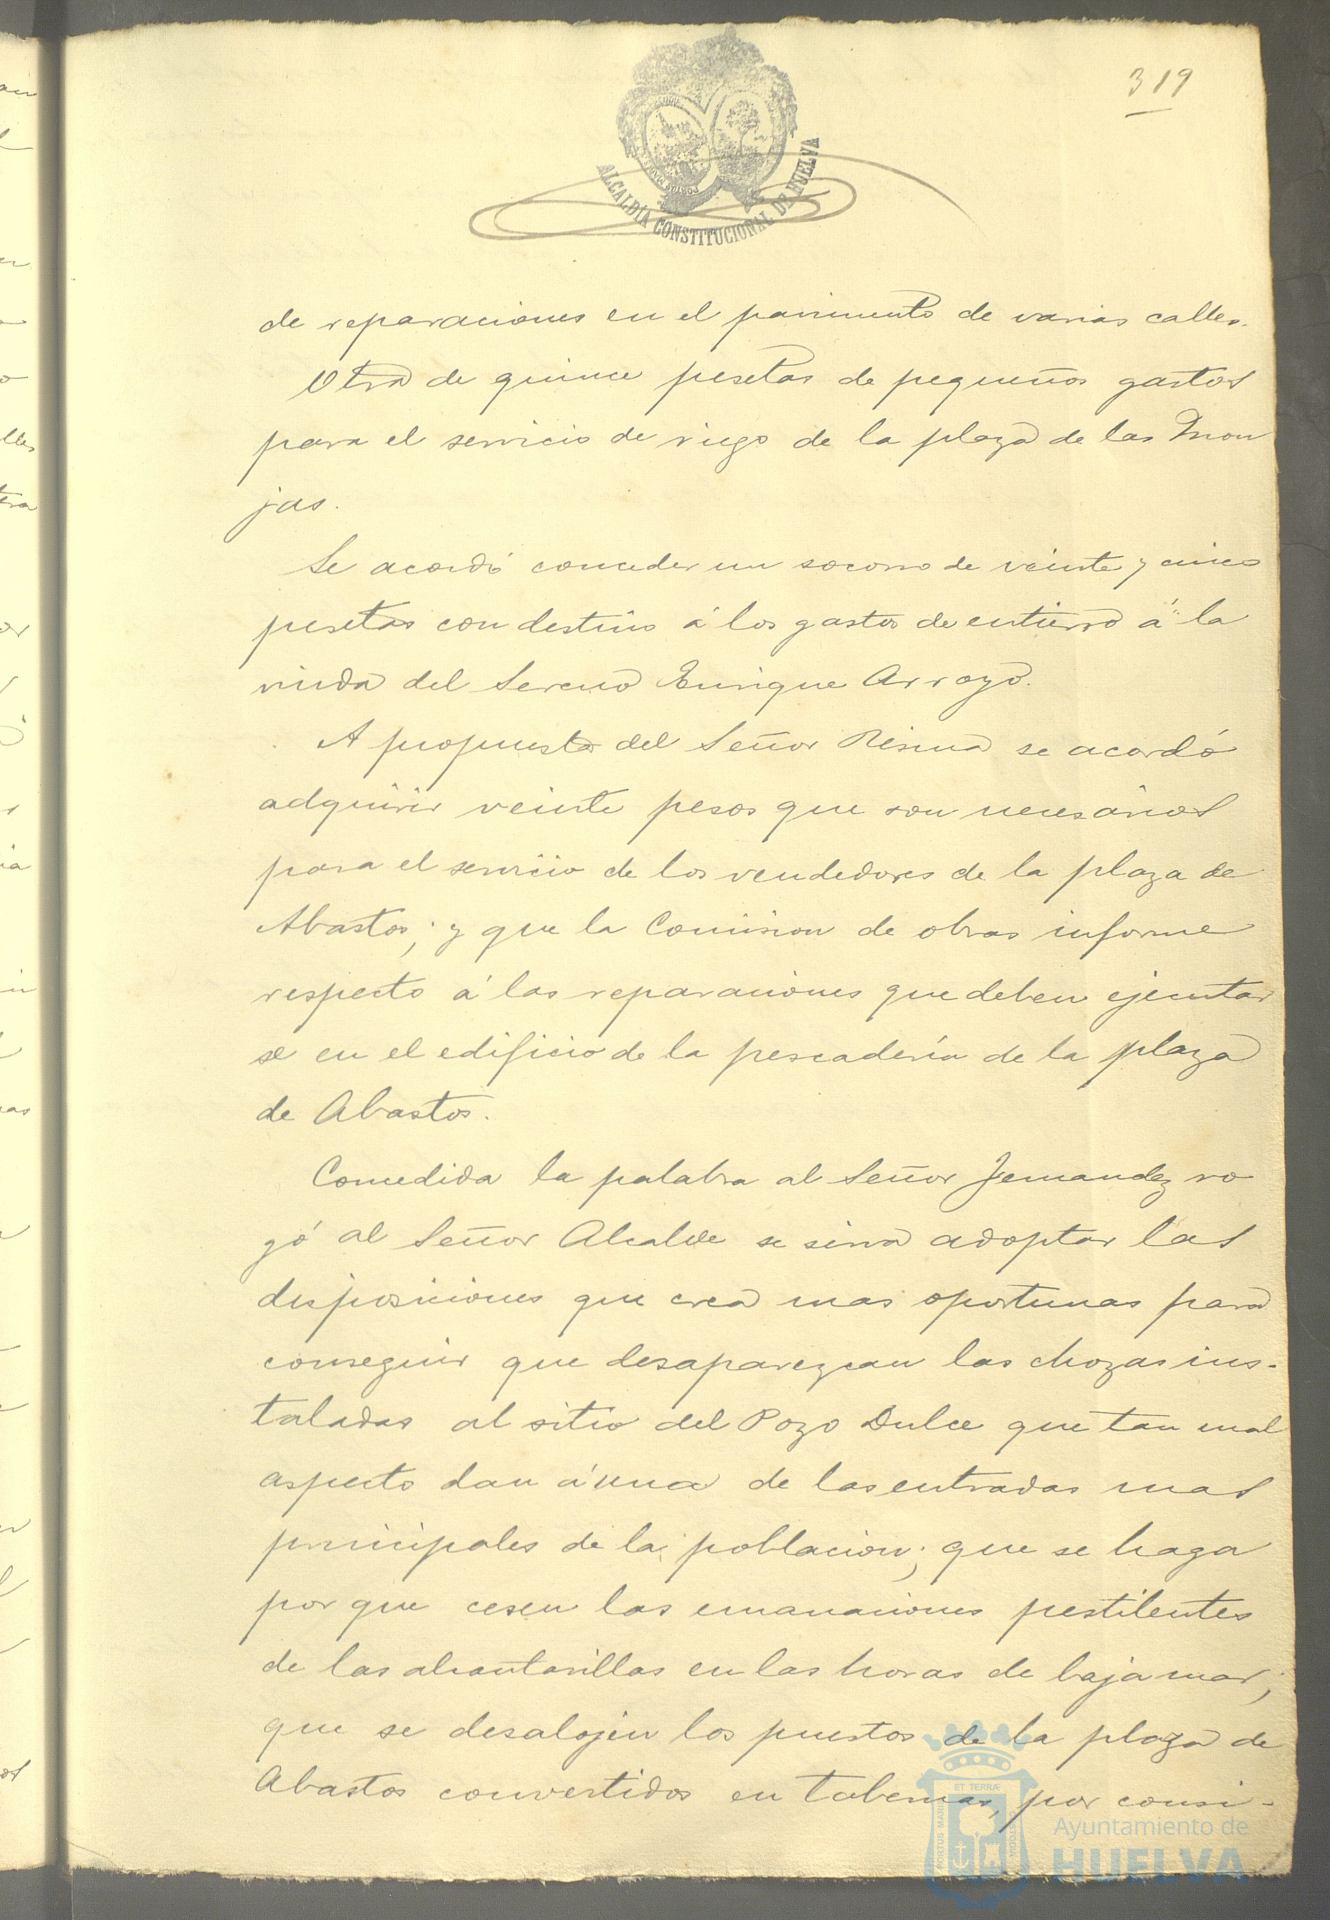 319
ALCALDÍA CONSTITUCIONAL DE HUELVA
de reparaciones en el pavimento de varias calles.
Otra de quince pesetas de pequeños gastos
para el servicio de riego de la plaza de las Mon
jas.
Se acordó conceder un socorro de veinte y cinco
pesetas con destino á los gastos de entierro á la
viuda del Sereno Enrique Arroyo.
A propuesta del Señor se acordó
adquirir veinte pesos que son necesarios
para el servicio de los vendedores de la plaza de
Abastos; y que la Comision de obras informe
respecto á las reparaciones que deben ejecutar
se en el edificio de la pescadería de la plaza
de Abastos.
Concedida la palabra al Señor Fernandez ro
gó al Señor Alcalde se sirva adoptar las
disposiciones que crea mas oportunas para
conseguir que desaparezcan las chozas ins-
taladas al sitio del Pozo Dulce que tan mal
aspecto dan á una de las entradas mas
principales de la poblacion; que se haga
por que cesen las emanaciones pestilentes
de las alcantarillas en las horas de baja mar;
que se desalojen los puestos de la plaza de
Abastos convertidos en tabernas, por consi-
PORTUS MARIS ET TERRÆ CUSTODIA
Ayuntamiento de
HUELVA